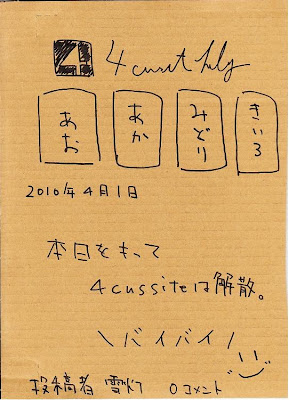 4
あお あか みどり きいろ
2010年4月1日
本日をもって
4cussiteは解散。
\バイバイ/
投稿者 0コメント